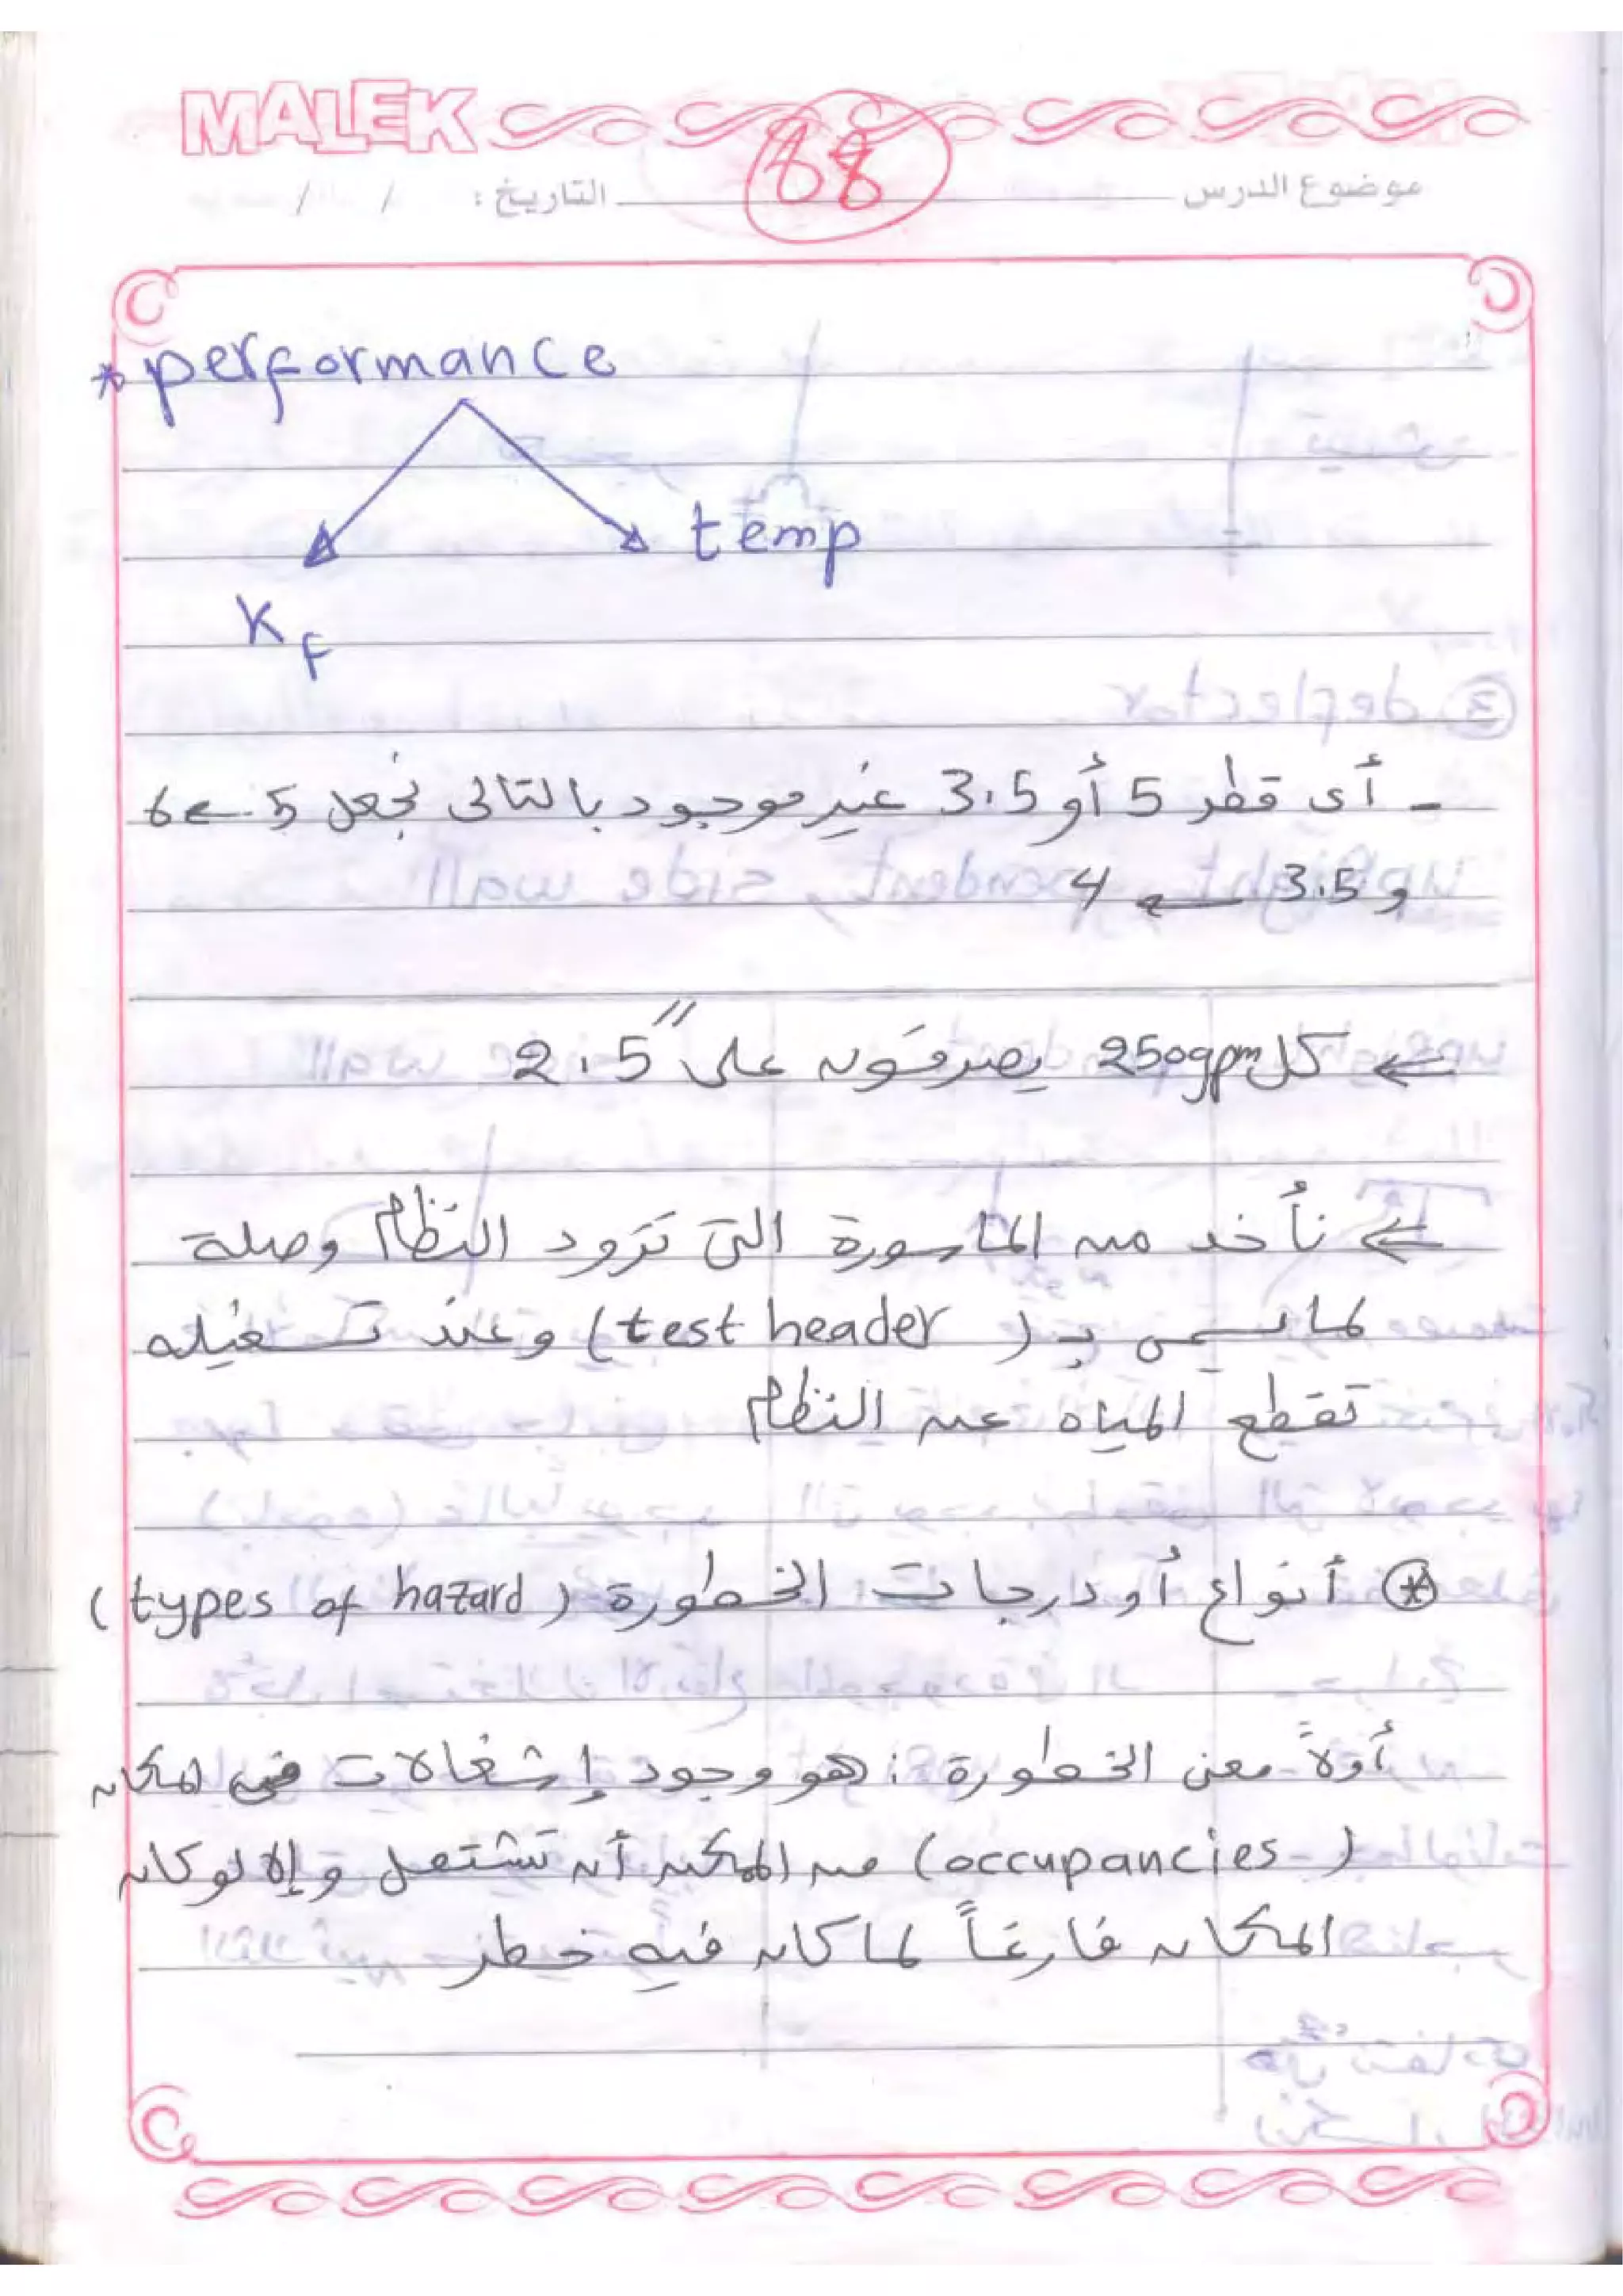 MALEK
88
موضوع الدرس التاريخ : / /
* performance
temp
K F
- أى قطر 5 أو 3.5 غير موجود بالتالى نجعل 5 → 6
و 3.5 → 4
⇐ كل 250gpm يصرفون على 2.5"
⇐ نأخد من الماسورة التى تزود النظام وصلة
لما يسمى بـ (test header) وعند تشغيله
تقطع المياه عن النظام
⊛ أنواع أو درجات الخطورة (types of hazard)
أولاً معنى الخطورة : هو وجود إشغالات فى المكان
(occupancies) من الممكن أن تشتعل وإلا لو كان
المكان فارغاً لما كان فيه خطر